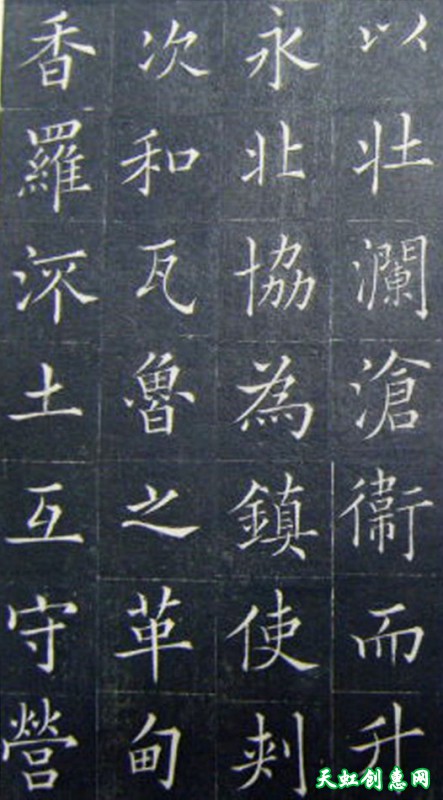 以壮瀾滄衛而升
永北協為鎮使刾
次和瓦魯之革甸
香羅沠土互守營
天虹创意网